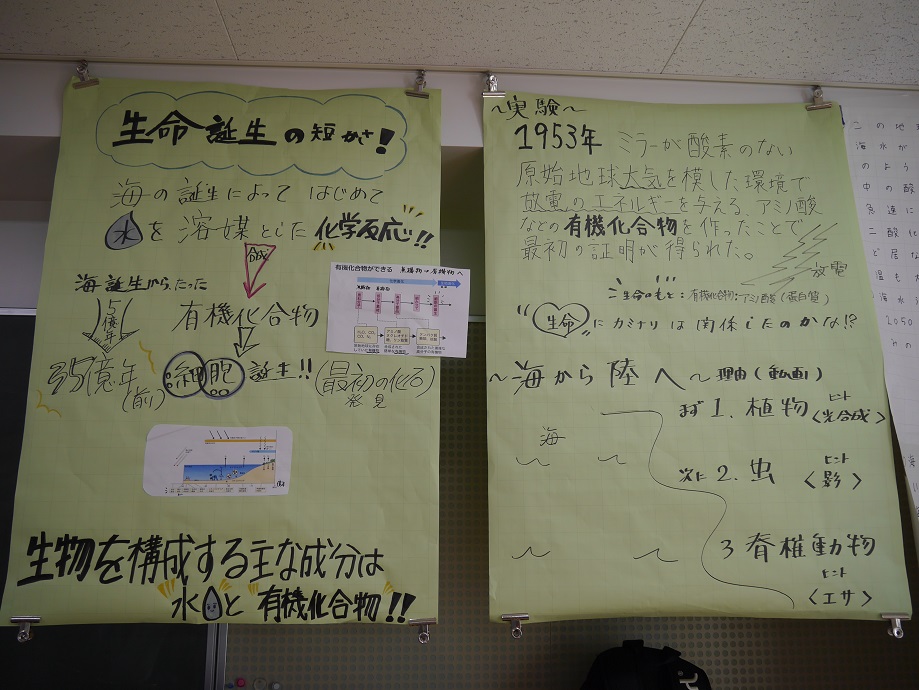 生命誕生の短かさ!
海の誕生によって はじめて
水を溶媒とした化学反応!!
合成
海誕生からたった
5億年
有機化合物
35億年(前) 細胞誕生!!(最初の化石発見)
有機化合物ができる 無機物→有機物へ
生物を構成する主な成分は
水と"有機化合物"!!
〜実験〜
1953年 ミラーが酸素のない
原始地球大気を模した環境で
放電のエネルギーを与える アミノ酸
などの有機化合物を作ったことで
最初の証明が得られた。
放電
生命のもと:有機化合物:アミノ酸(蛋白質)
"生命"にカミナリは関係したのかな!?
〜海から陸へ〜 理由(動画)
まず1.植物 ヒント〈光合成〉
海
次に2.虫 ヒント〈影〉
3 脊椎動物
ヒント
〈エサ〉
この地
海水が
のよう
中の酸
急速に
二酸化
ど居な
温も
海水
2050